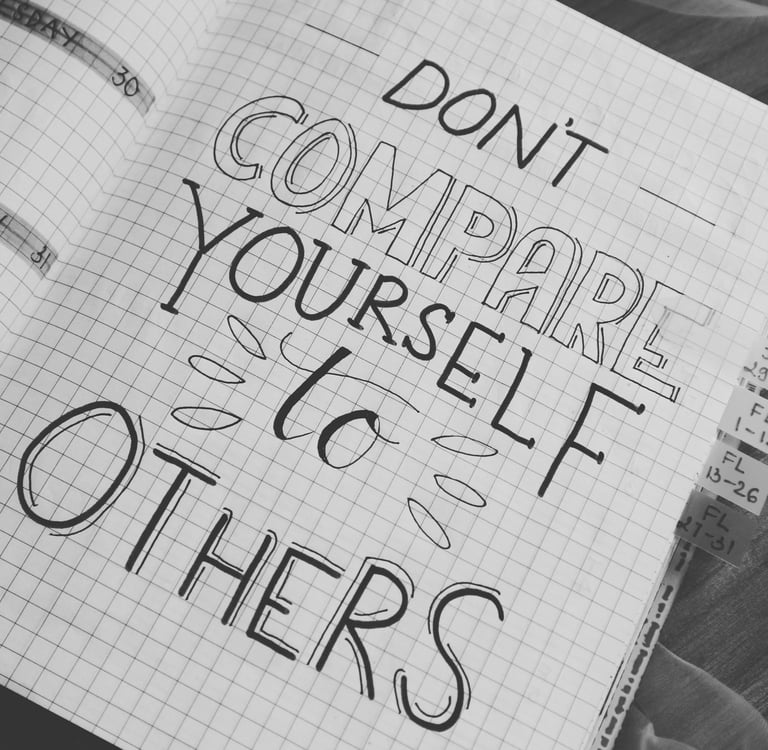 30
31
DON'T
COMPARE
YOURSELF
to
OTHERS
FL
13-26
FL
27-31